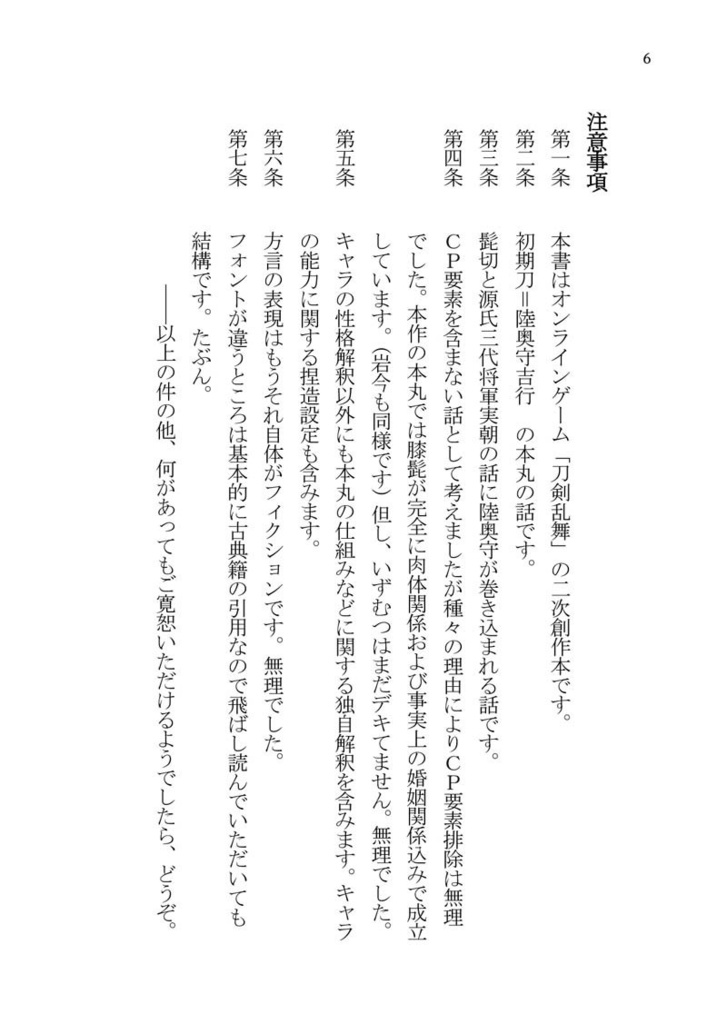 6
注意事項
第一条　本書はオンラインゲーム「刀剣乱舞」の二次創作本です。
第二条　初期刀＝陸奥守吉行　の本丸の話です。
第三条　髭切と源氏三代将軍実朝の話に陸奥守が巻き込まれる話です。
第四条　ＣＰ要素を含まない話として考えましたが種々の理由によりＣＰ要素排除は無理
でした。本作の本丸では膝髭が完全に肉体関係および事実上の婚姻関係込みで成立
しています。（岩今も同様です）但し、いずむつはまだデキてません。無理でした。
第五条　キャラの性格解釈以外にも本丸の仕組みなどに関する独自解釈を含みます。キャラ
の能力に関する捏造設定も含みます。
第六条　方言の表現はもうそれ自体がフィクションです。無理でした。
第七条　フォントが違うところは基本的に古典籍の引用なので飛ばし読んでいただいても
結構です。たぶん。
――以上の件の他、何があってもご寛恕いただけるようでしたら、どうぞ。